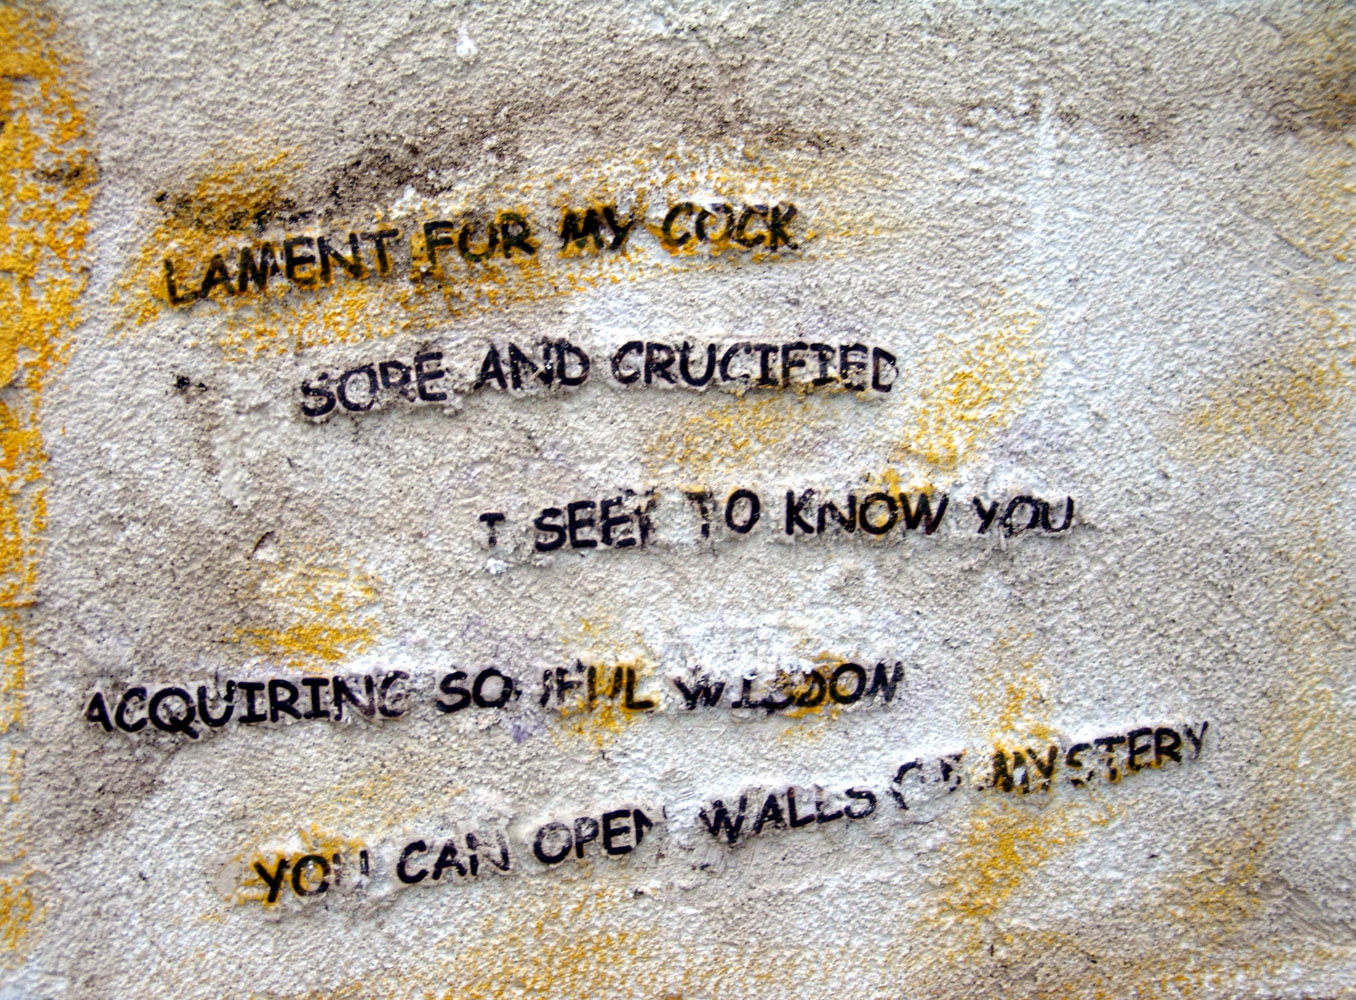 LAMENT FOR MY COCK
SORE AND CRUCIFIED
I SEEK TO KNOW YOU
ACQUIRING SOULFUL WISDOM
YOU CAN OPEN WALLS OF MYSTERY